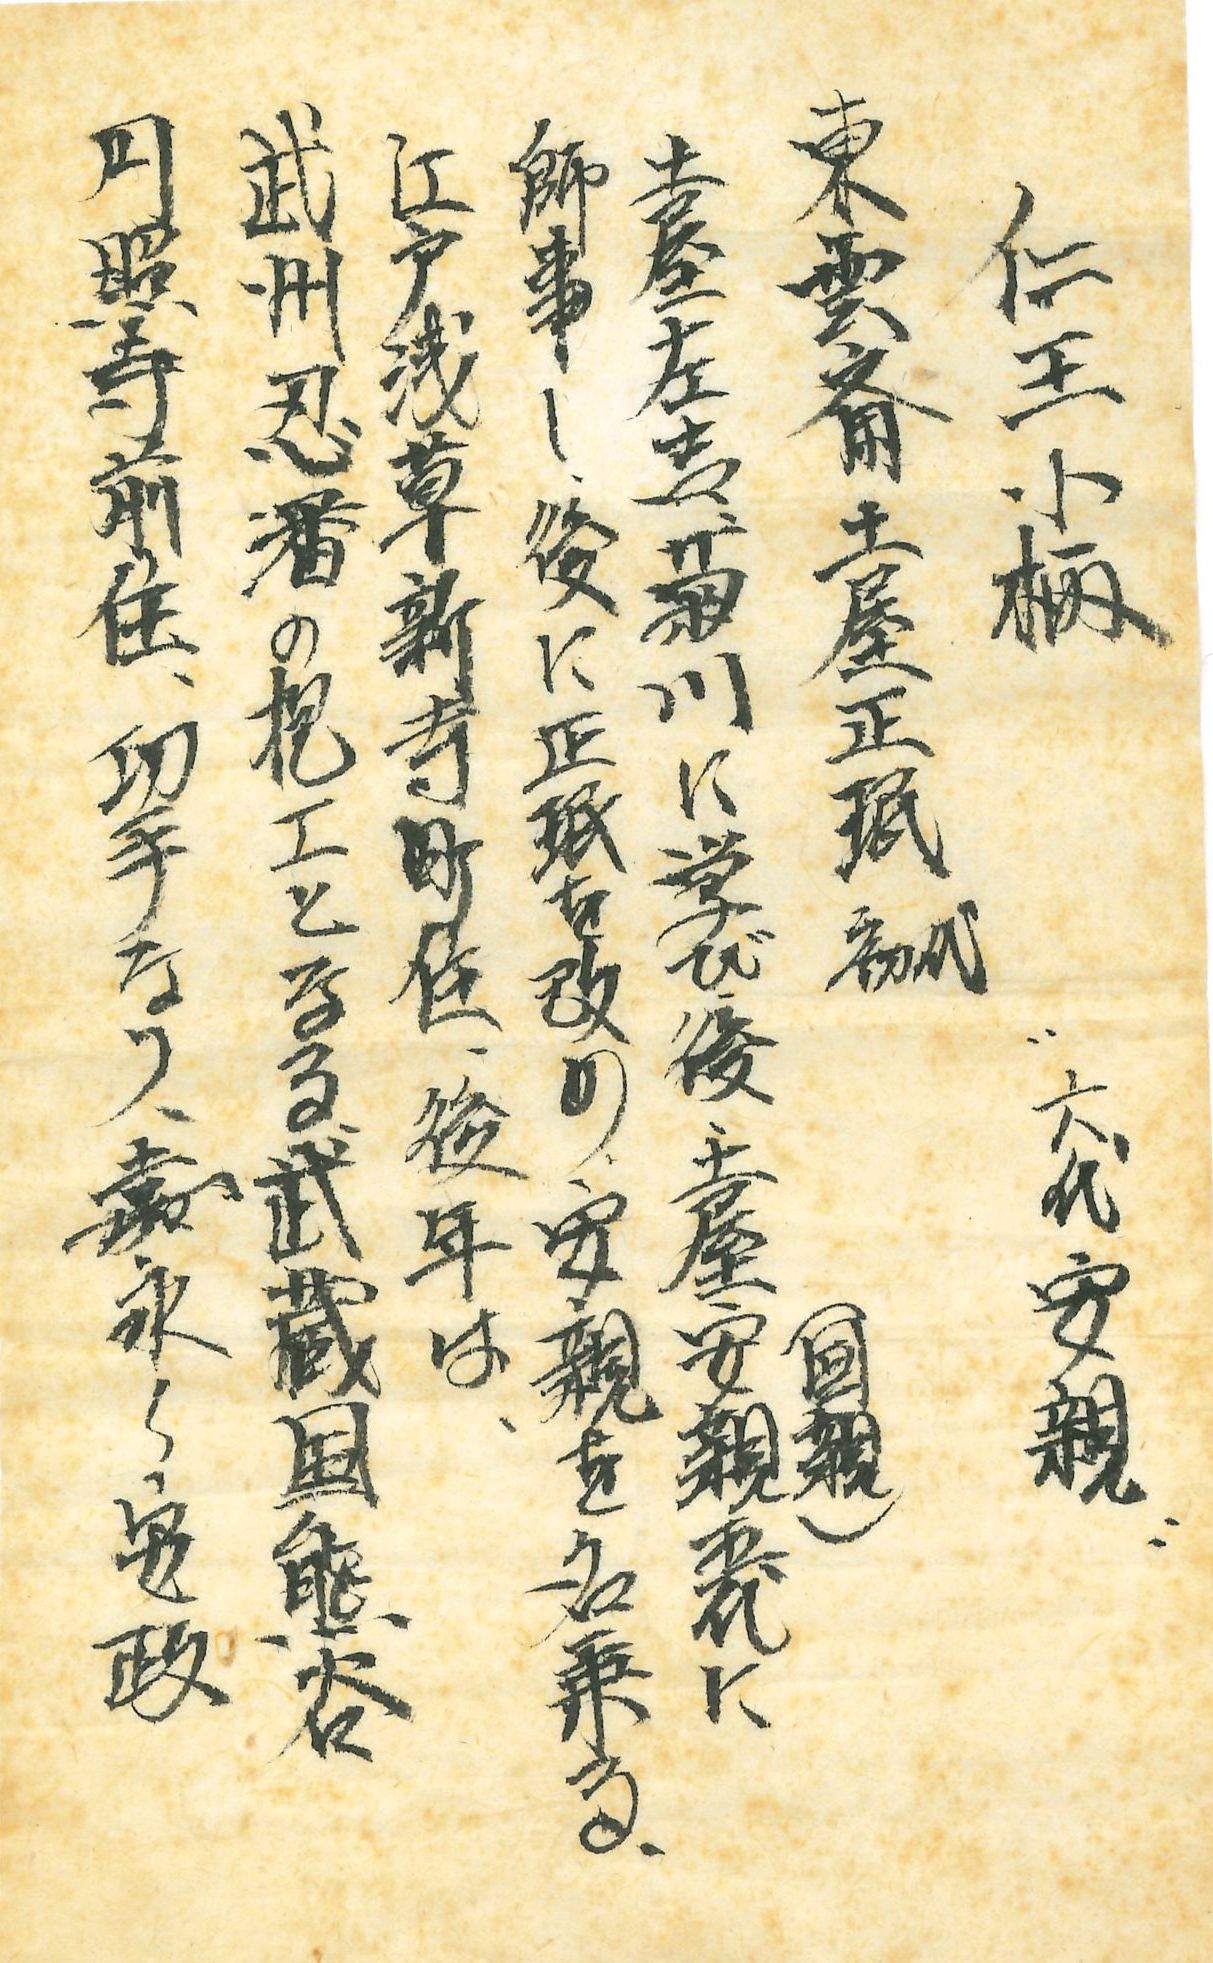 仁王小柄
〝六代安親〟
東雲斎土屋正珉 初代
(国親)
土屋左吉、菊川に学び、後、土屋安親五代に
師事し、後に正珉を改め、安親を名乗る、
江戸浅草新寺町住、後年は、
武州忍藩の抱工となる、武蔵国熊谷
円照寺前住、切手なり、嘉永〜安政